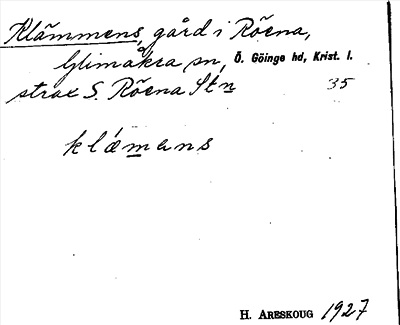 Klämmens, gård i Röena,
Glimåkra sn, Ö. Göinge hd, Krist. l.
strax S. Röena Stn 35
klǽmans
H. Areskoug 1927